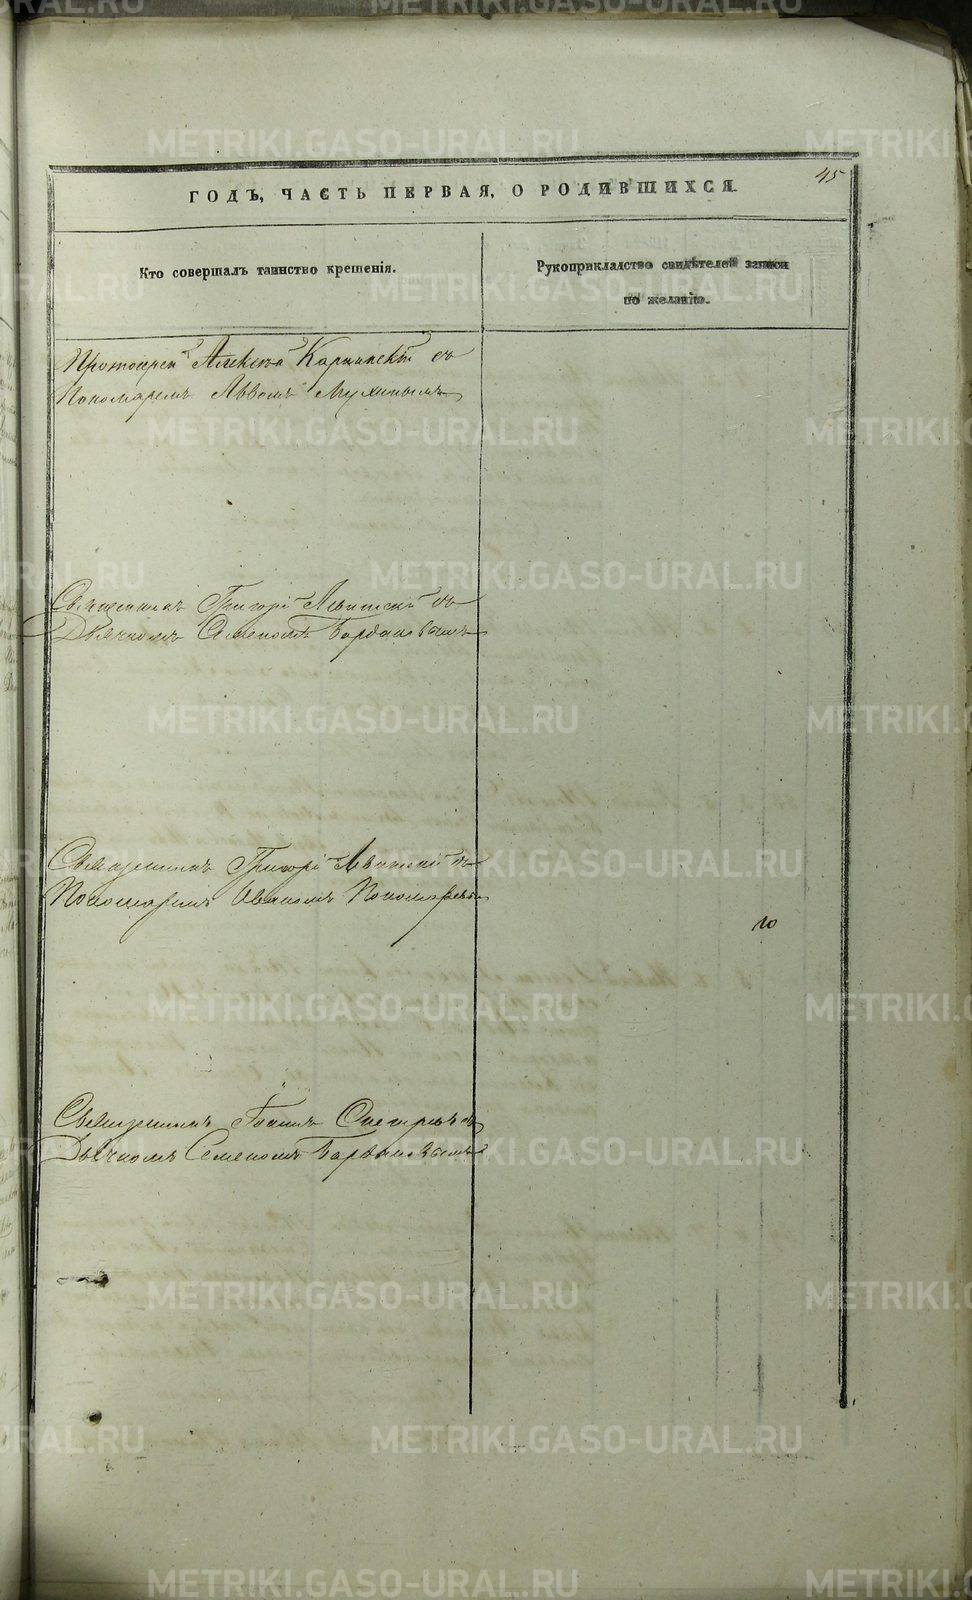 45
ГОДЪ, ЧАСТЬ ПЕРВАЯ, О РОДИВШИХСЯ.
Кто совершалъ таинство крещенія.
Рукоприкладство свидѣтелей записи
по желанію.
Протоіерей Алексѣй Карпинскій съ
Пономаремъ Львомъ Мухинымъ
Священникъ Григорій Левитскій съ
Дьячкомъ Семеномъ
Священникъ Григорій Левитскій съ
Пономаремъ Иваномъ Пономаревымъ
10
Священникъ Іоаннъ
Дьячкомъ Семеномъ
METRIKI.GASO-URAL.RU